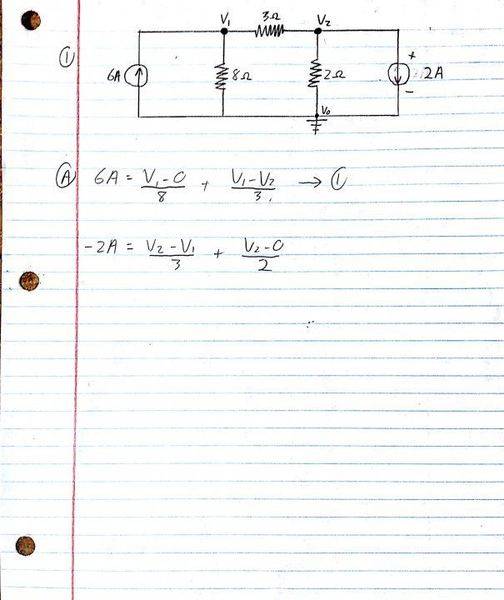 ①
V₁ 3Ω V₂
6A 8Ω 2Ω + 2A -
V₀
Ⓐ 6A = (V₁-0)/8 + (V₁-V₂)/3 → ①
-2A = (V₂-V₁)/3 + (V₂-0)/2